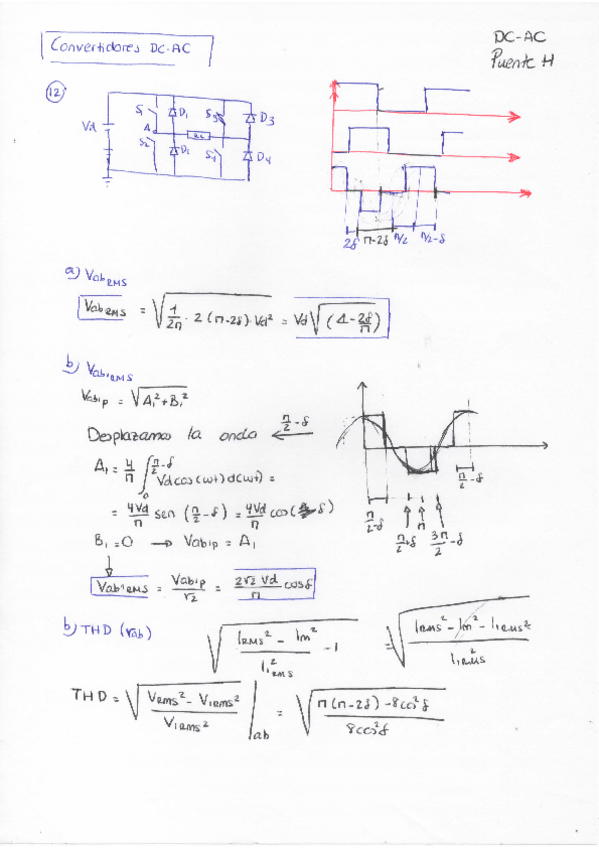 Convertidores DC-AC
DC-AC
Puente H
12
S1 D1 S3 D3
Vd A
S2 D2 S4 D4
2δ π-2δ π/2 π/2-δ
a) Vab RMS
Vab RMS = √(1/2π · 2(π-2δ)·Vd²) = Vd√(1-2δ/π)
b) Vab1RMS
Vab1p = √(A1²+B1²)
Desplazamos la onda ← π/2-δ
A1 = 4/π ∫0^(π/2-δ) Vd cos(wt) d(wt) =
= 4Vd/π sen (π/2-δ) = 4Vd/π cos(δ)
B1=0 → Vab1p = A1
Vab1RMS = Vab1p/√2 = 2√2 Vd/π cosδ
π/2-δ
π/2-δ π/2+δ π 3π/2-δ
b) THD (Vab)
√((IRMS² - Im²)/I1RMS² - 1) = √((IRMS² - Im² - I1RMS²)/I1RMS²)
THD = √((VRMS² - V1RMS²)/V1RMS²)|ab = √((π(π-2δ) - 8cos²δ)/8cos²δ)